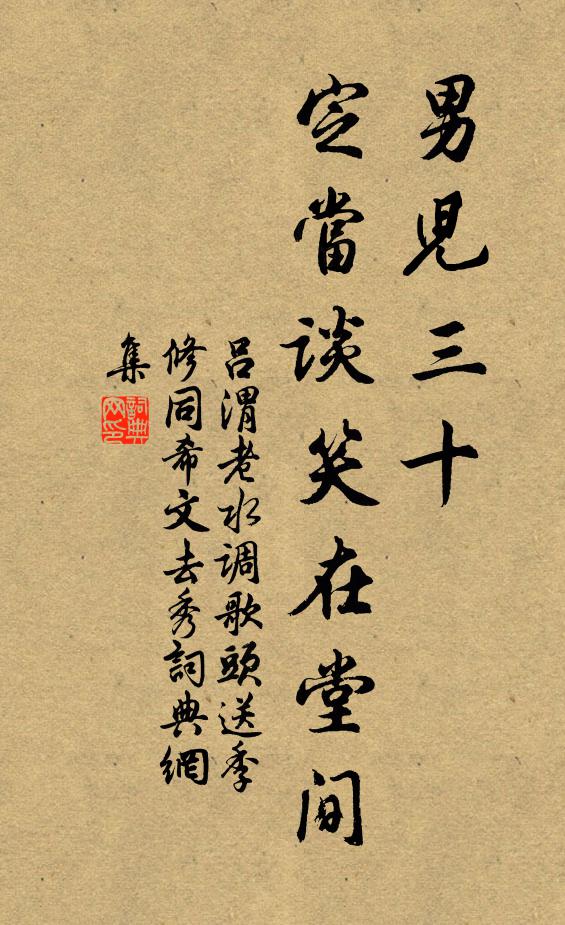 男兒三十
定當談笑在堂间
吕渭老水调歌頭送季
修同希文去秀詞典網
集
詞典
网印